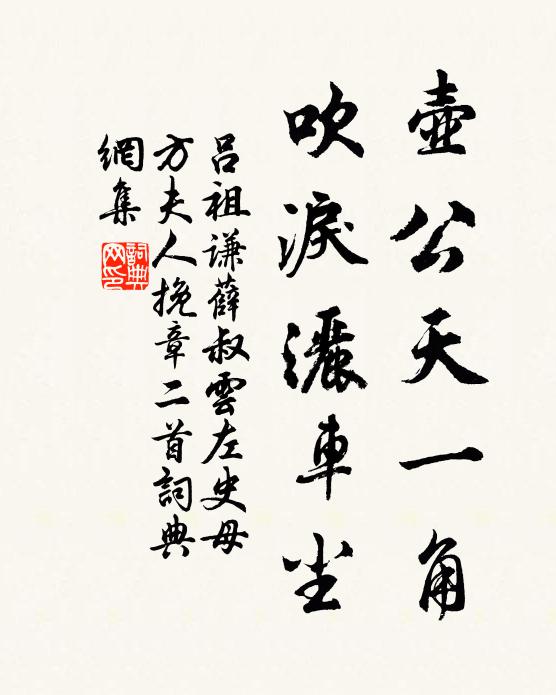 壺公天一角
吹淚灑車尘
呂祖謙薛叔雲左史母
方夫人挽章二首詞典
網集
詞典網印